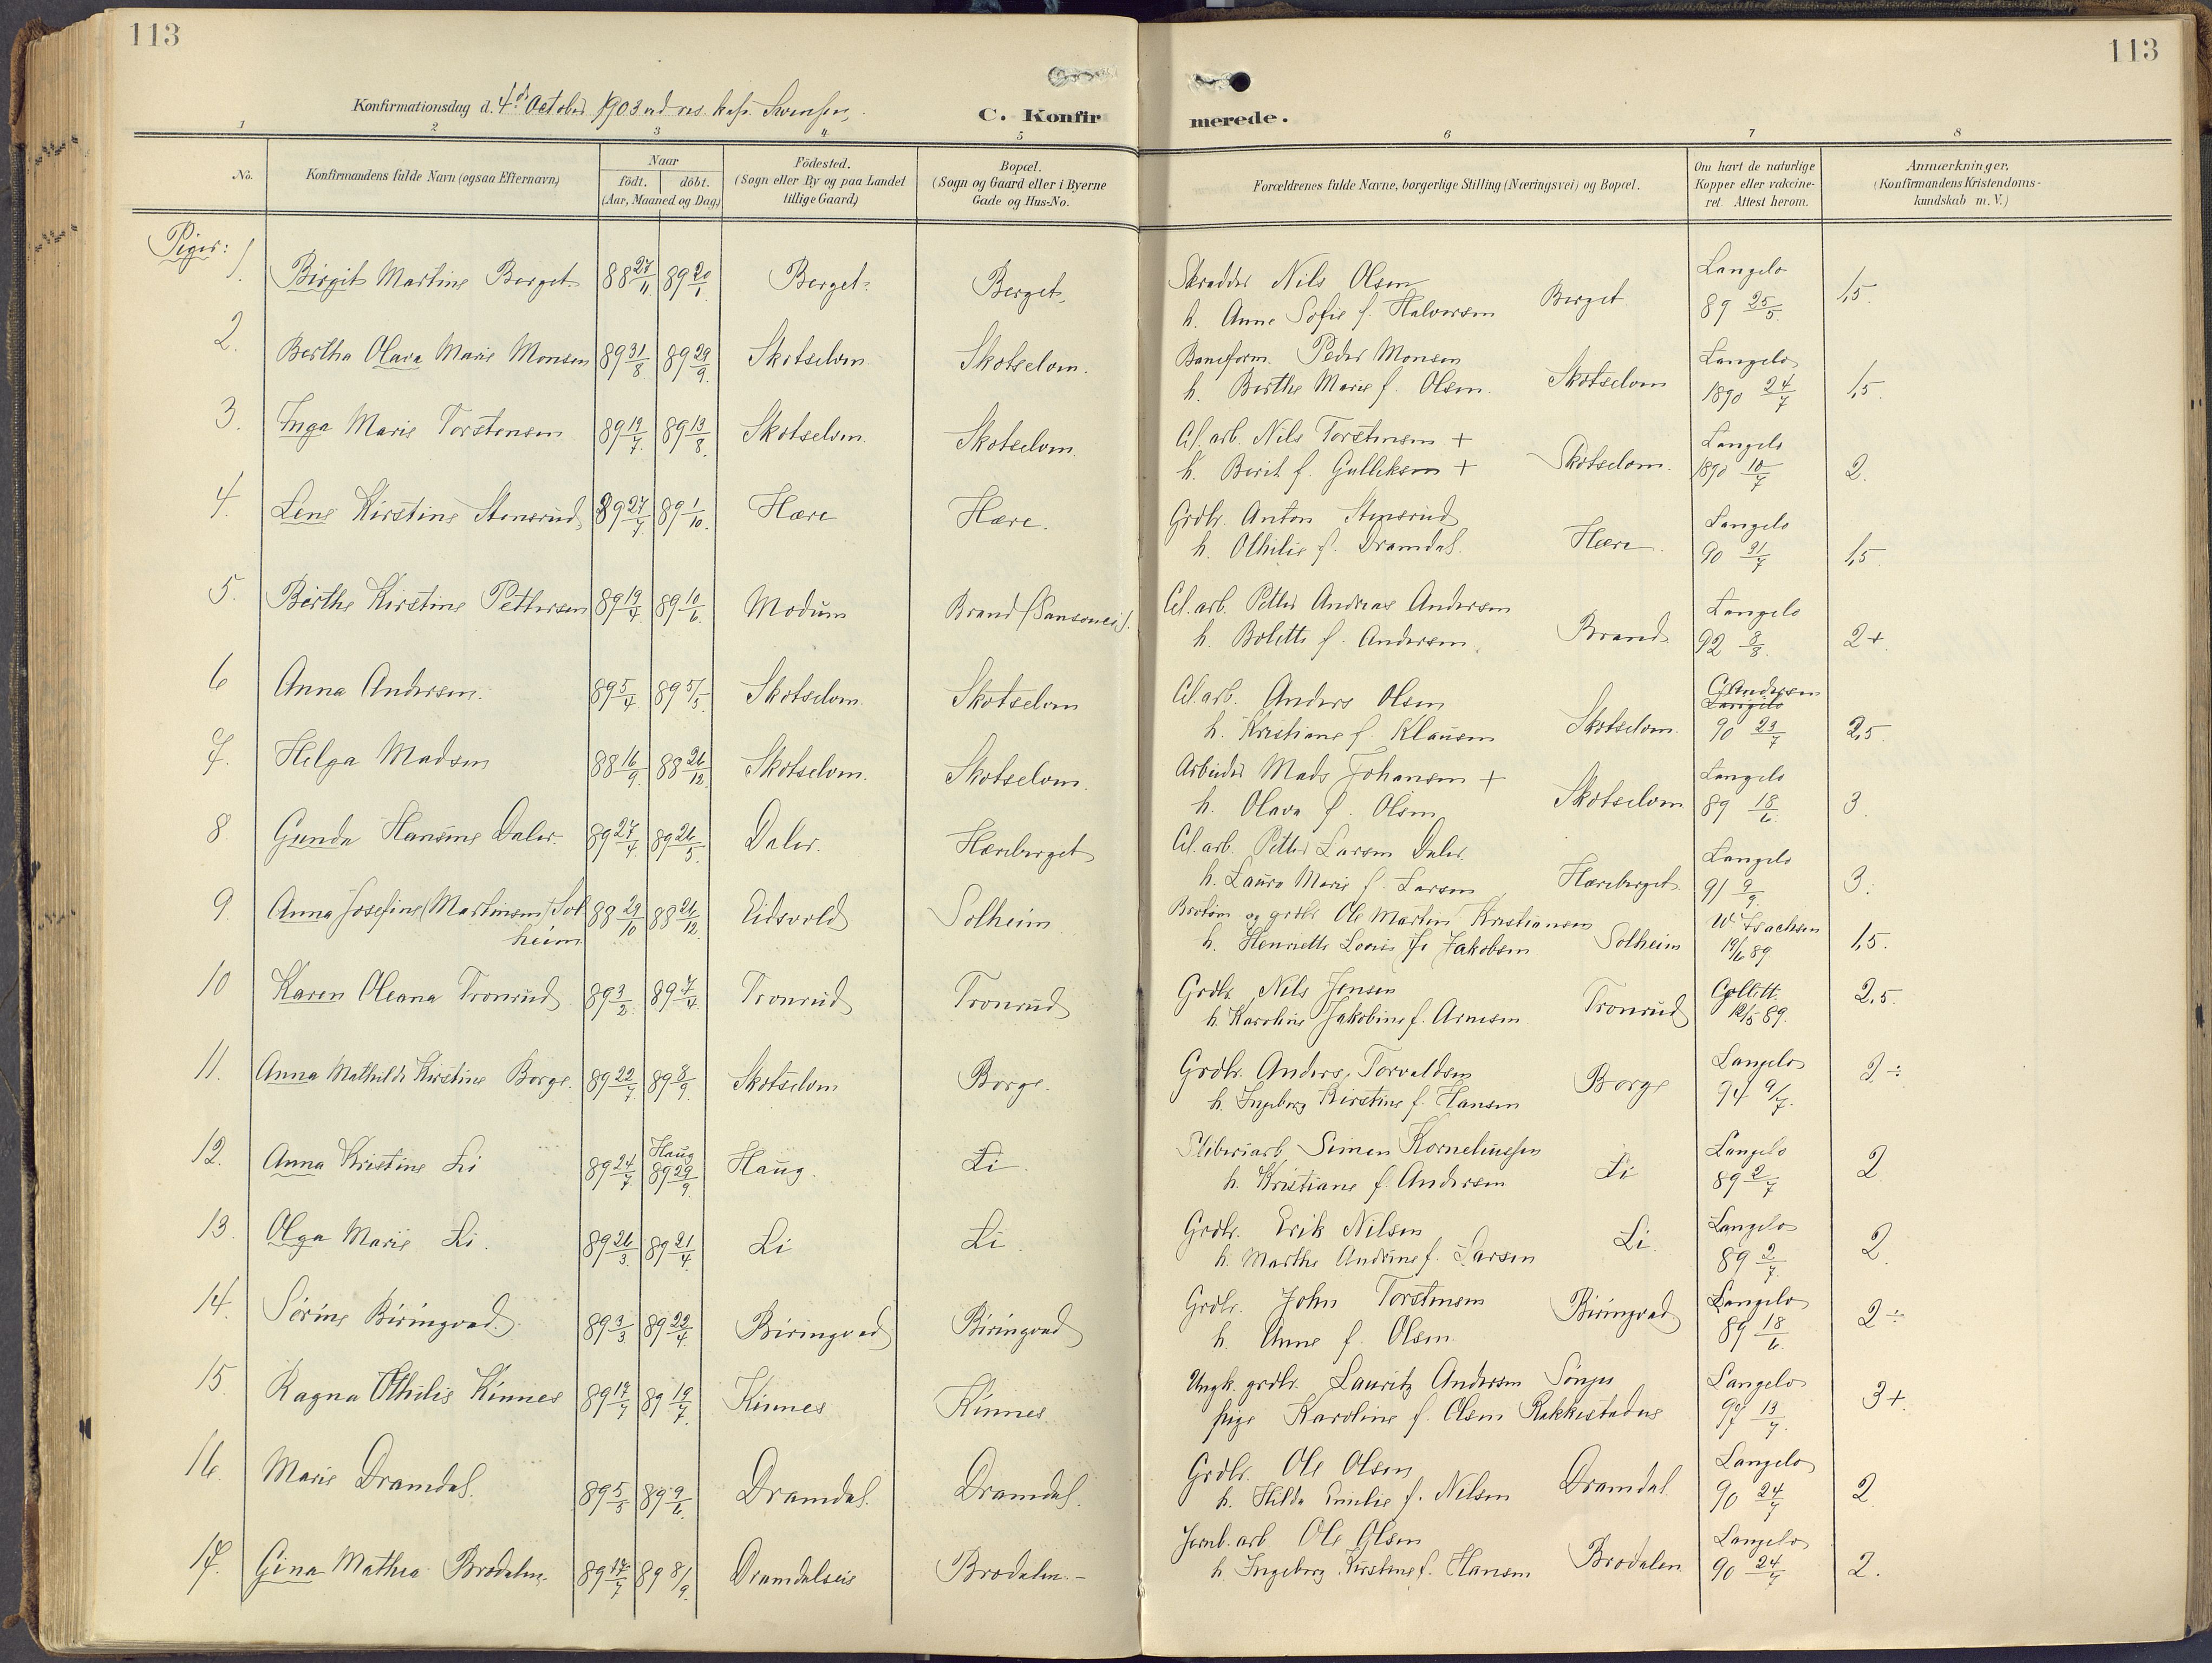 113
113
Konfirmationsdag d. 4de October 1903 ved res. kap. Svensen,
C. Konfirmerede.
1 2 3 4 5 6 7 8
No.
Konfirmandens fulde Navn (ogsaa Efternavn)
Naar
födt. döbt.
(Aar, Maaned og Dag)
Födested.
(Sogn eller By og paa Landet
tillige Gaard)
Bopæl.
(Sogn og Gaard eller i Byerne
Gade og Hus-No.
Forældrenes fulde Navne, borgerlige Stilling (Næringsvei) og Bopæl.
Om havt de naturlige
Kopper eller vakcine-
ret. Attest herom.
Anmærkninger,
(Konfirmandens Kristendoms-
kundskab m. V.)
Piger:
1. Birgit Martine Berget 88 27/11 89 20/1 Berget Berget
Skrædder Nils Olsen
h. Anne Sofie f. Halvorsen Berget Langelo 89 25/5 1,5.
2. Bertha Olava Marie Monsen 89 31/8 89 29/9 Skotselven Skotselven.
Baneform. Peder Monsen
h. Berthe Marie f. Olsen. Skotselven Langelo 1890 24/7 1,5.
3. Inga Marie Torstensen 89 19/7 89 13/8 Skotselven. Skotselven.
Cel. arb. Nils Torstensen +
h. Berit f. Gulliksen + Skotselven. Langelo 1890 10/7 2.
4. Lene Kirstine Stensrud 89 27/7 89 1/10 Hære Hære.
Grdbr. Anton Stensrud
h. Othilie f. Dramdal. Hære. Langelo 90 31/7 1,5
5. Berthe Kirstine Pettersen 89 19/4 89 10/6 Modum Brand
Cel. arb. Petter Andreas Andersen
h. Bolette f. Andersen. Brand Langelo 92 8/8 2+.
6 Anna Andersen. 89 5/4 89 5/5 Skotselven. Skotselven
Cel. arb. Anders Olsen
h. Kristiane f. Klausen Skotselven. C. Andersen
Langelo
90 23/7 2,5
7. Helga Madsen 88 16/9 88 26/12 Skotselven. Skotselven.
Arbeider Mads Johansen +
h. Olava f. Olsen Skotselven Langelo 89 18/6 3.
8 Gunda Hansine Daler. 89 27/4 89 26/5 Daler. Hæreberget
Cel. arb. Petter Larsen Daler
h. Laura Marie f. Larsen Hæreberget Langelo 91 9/9 3.
9. Anna Josefine (Martinsen) Sol
heim 88 29/10 88 26/12 Eidsvold Solheim
og grdbr. Ole Martin Kristiansen
h. Henriette Lovise f. Jakobsen Solheim W. Isachsen 19/6 89 1,5.
10 Karen Oleana Tronrud 89 3/2 89 7/4 Tronrud Tronrud
Grdbr. Nils Jensen
h. Karoline Jakobine f. Arnesen Tronrud Collett. 12/5 89. 2,5.
11. Anna Mathilde Kirstine Borge. 89 22/7 89 8/9 Skotselven Borge.
Grdbr. Anders Torvaldsen
h. Ingeborg Kirstine f. Hansen Borge Langelo 94 9/7 2÷
12. Anna Kristine Li 89 24/7 Haug 89 29/9 Haug. Li.
Sliberiarb. Simen Korneliussen
h. Kristiane f. Andersen Li Langelo 89 2/7 2
13. Olga Marie Li. 89 26/3 89 21/4 Li Li.
Grdbr. Erik Nilsen
h. Marthe Andrine f. Larsen Li. Langelo 89 2/7 2
14. Sørine Biringved. 89 3/3 89 22/4 Biringved Biringved
Grdbr. John Torstensen
h. Anne f. Olsen. Biringved Langelo 89 18/6 2÷
15. Ragna Othilie Kinnes 89 17/4 89 19/7 Kinnes Kinnes
Ungk. grdbr. Lauritz Andersen Sønju
pige Karoline f. Olsen Rakkestadne Langelo 97 13/7 3+.
16. Marie Dramdal. 89 5/5 89 9/6 Dramdal. Dramdal.
Grdbr. Ole Olsen
h. Hilda Emilie f. Nilsen Dramdal Langelo 90 24/7 2
17. Gina Mathea Brodalen. 89 17/7 89 8/9 Dramdalseie Brodalen.-
Jernb. arb. Ole Olsen
h. Ingeborg Kirstine f. Hansen Brodalen. Langelo 90 24/7 2.